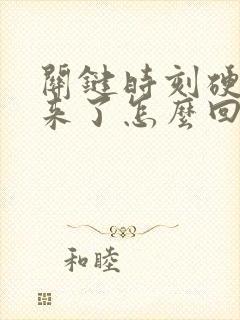 關鍵時刻硬
來了怎麼回
和睦